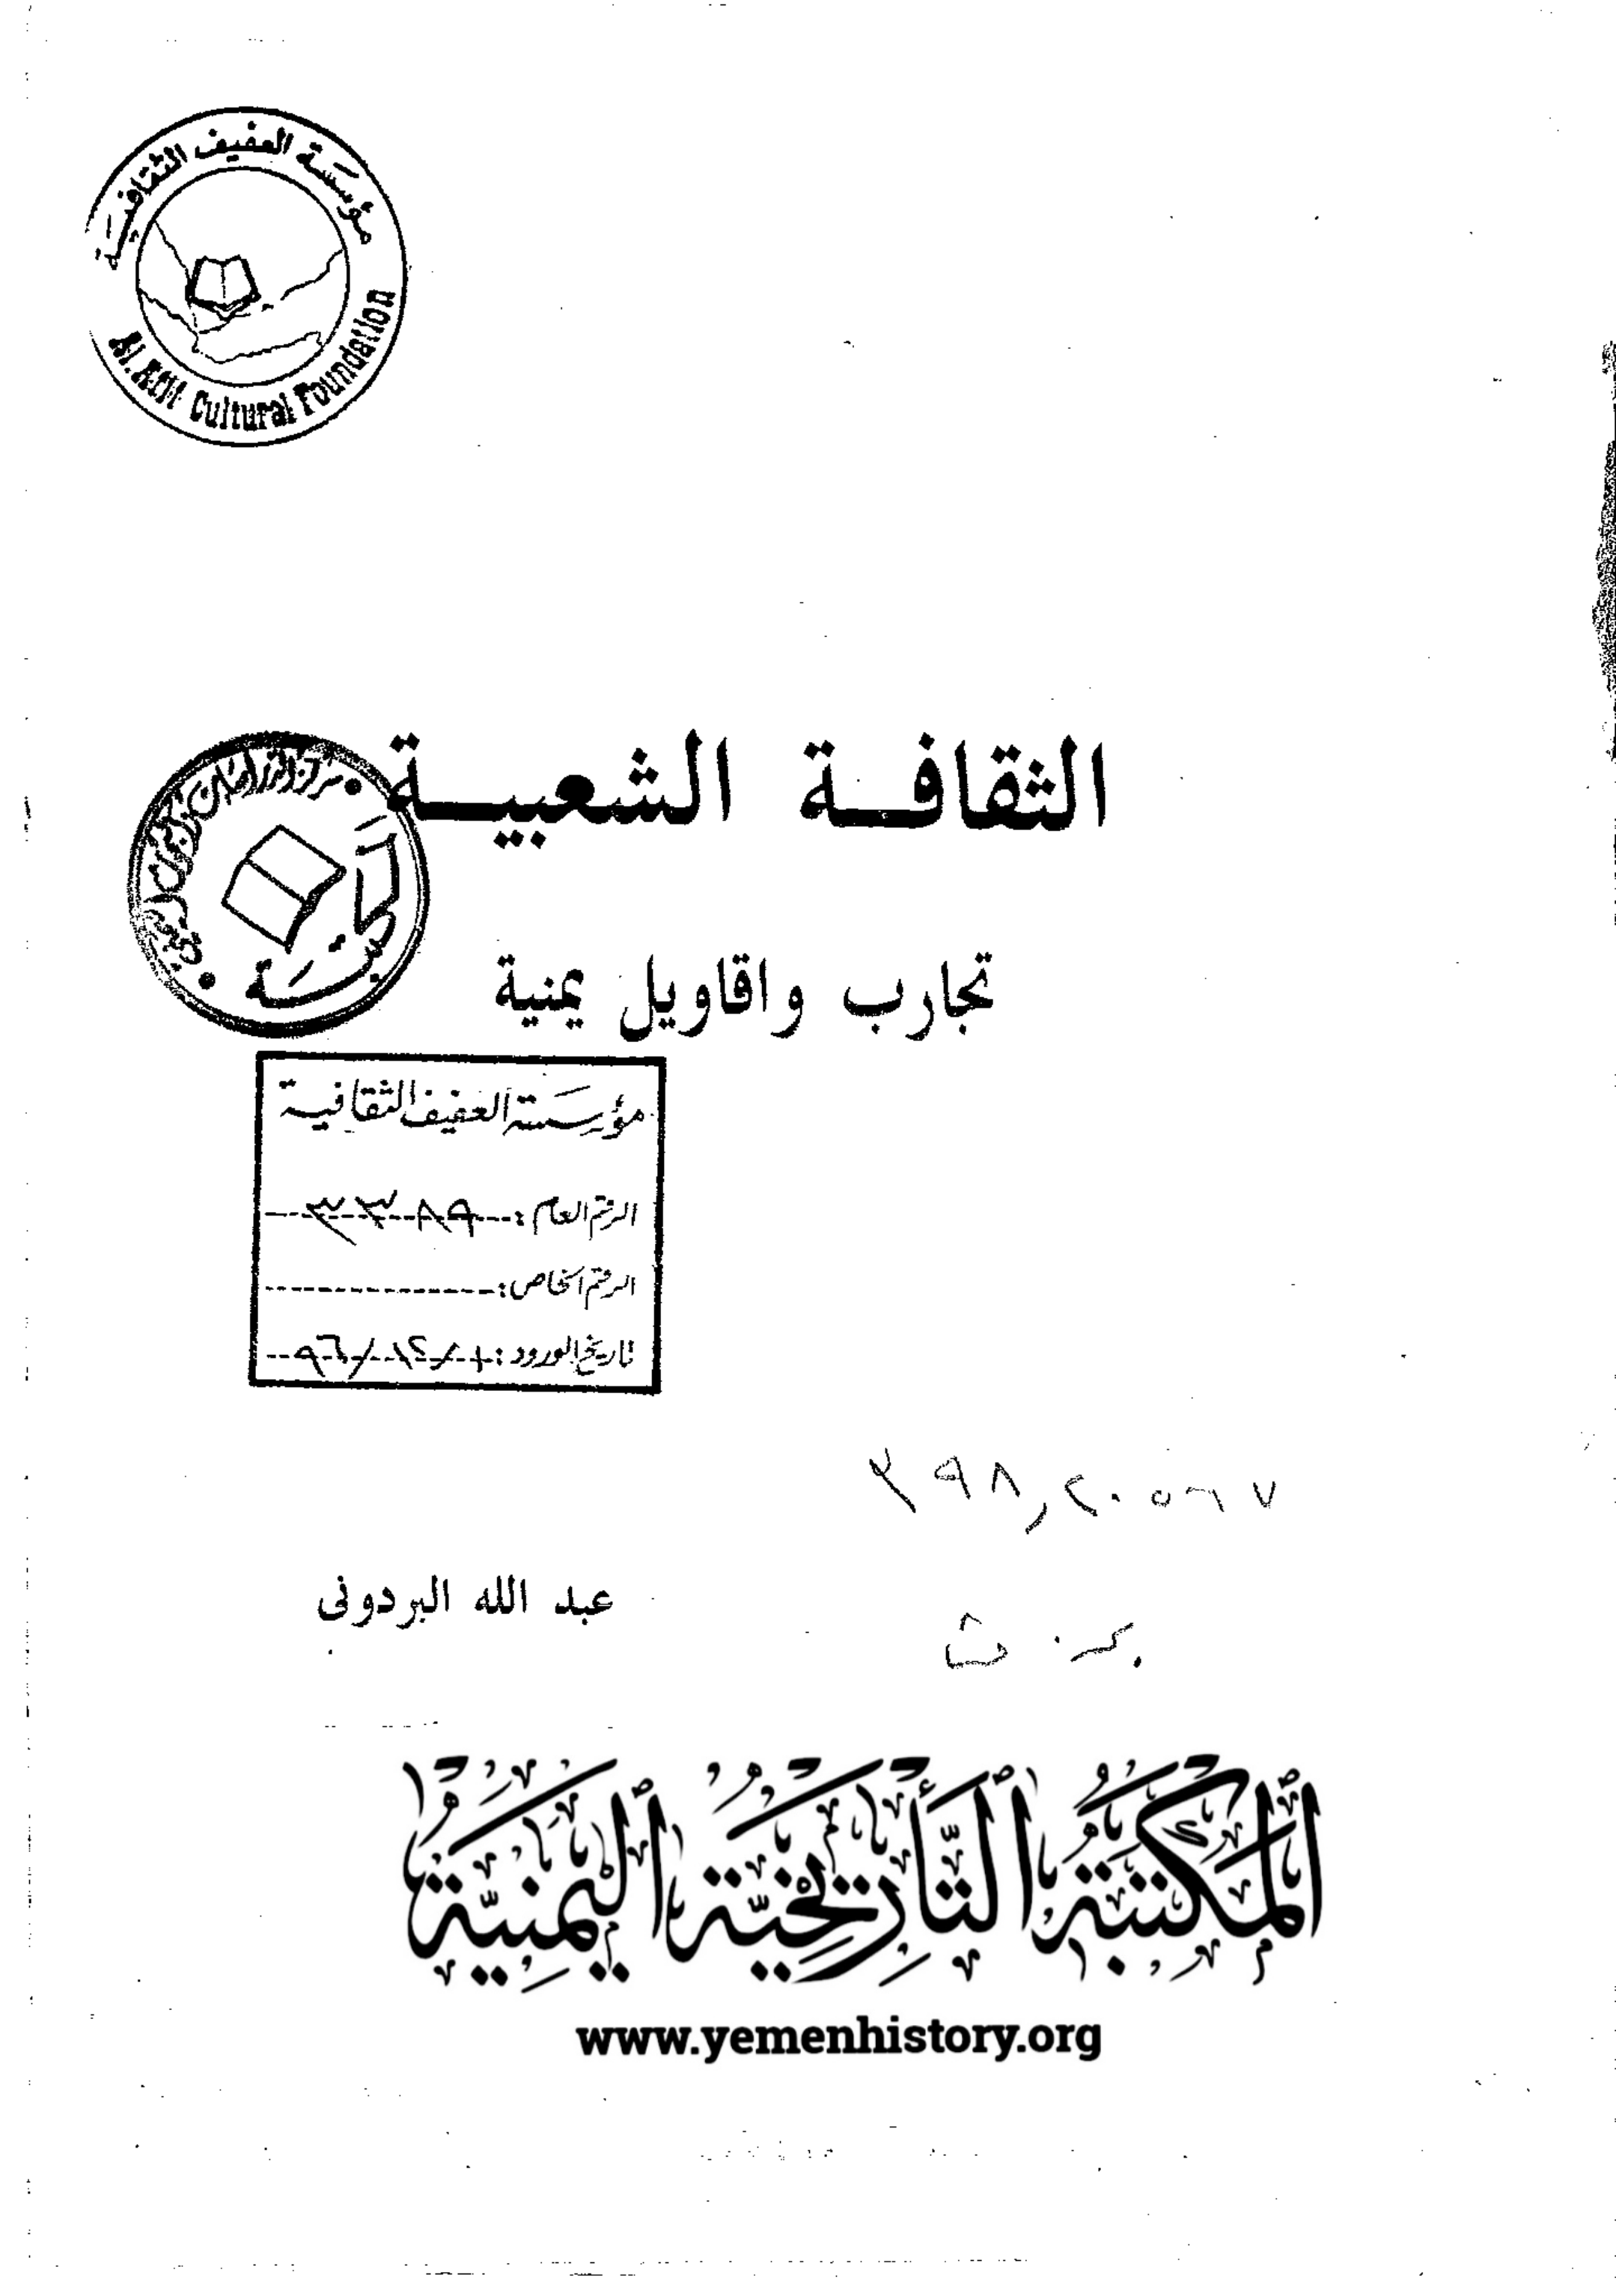 مؤسسة العفيف الثقافية
Al.Afif Cultural Foundation
الثقافــة الشعبيــة
تجارب واقاويل يمنية
مكتبــة
مؤسسة العفيف الثقافية
الرقم العام : ٣٣٨٩
الرقم الخاص :
تاريخ الورود : ١٢/ ٩٦/
٣٩٨,٢٠٥٦٧
عبد الله البردونى
المكتبة التأريخية اليمنية
www.yemenhistory.org